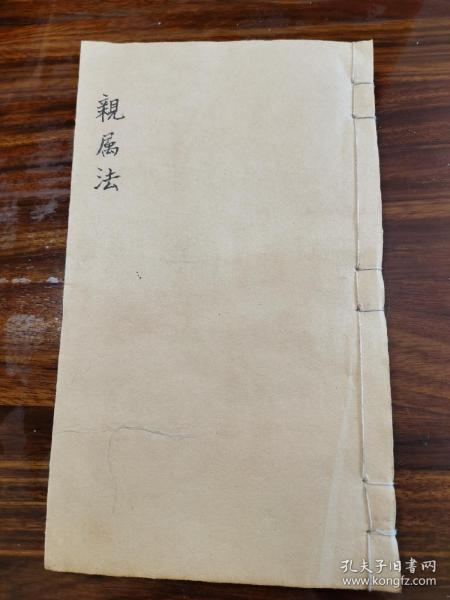 親属法
孔夫子旧书网
www.kongfz.com